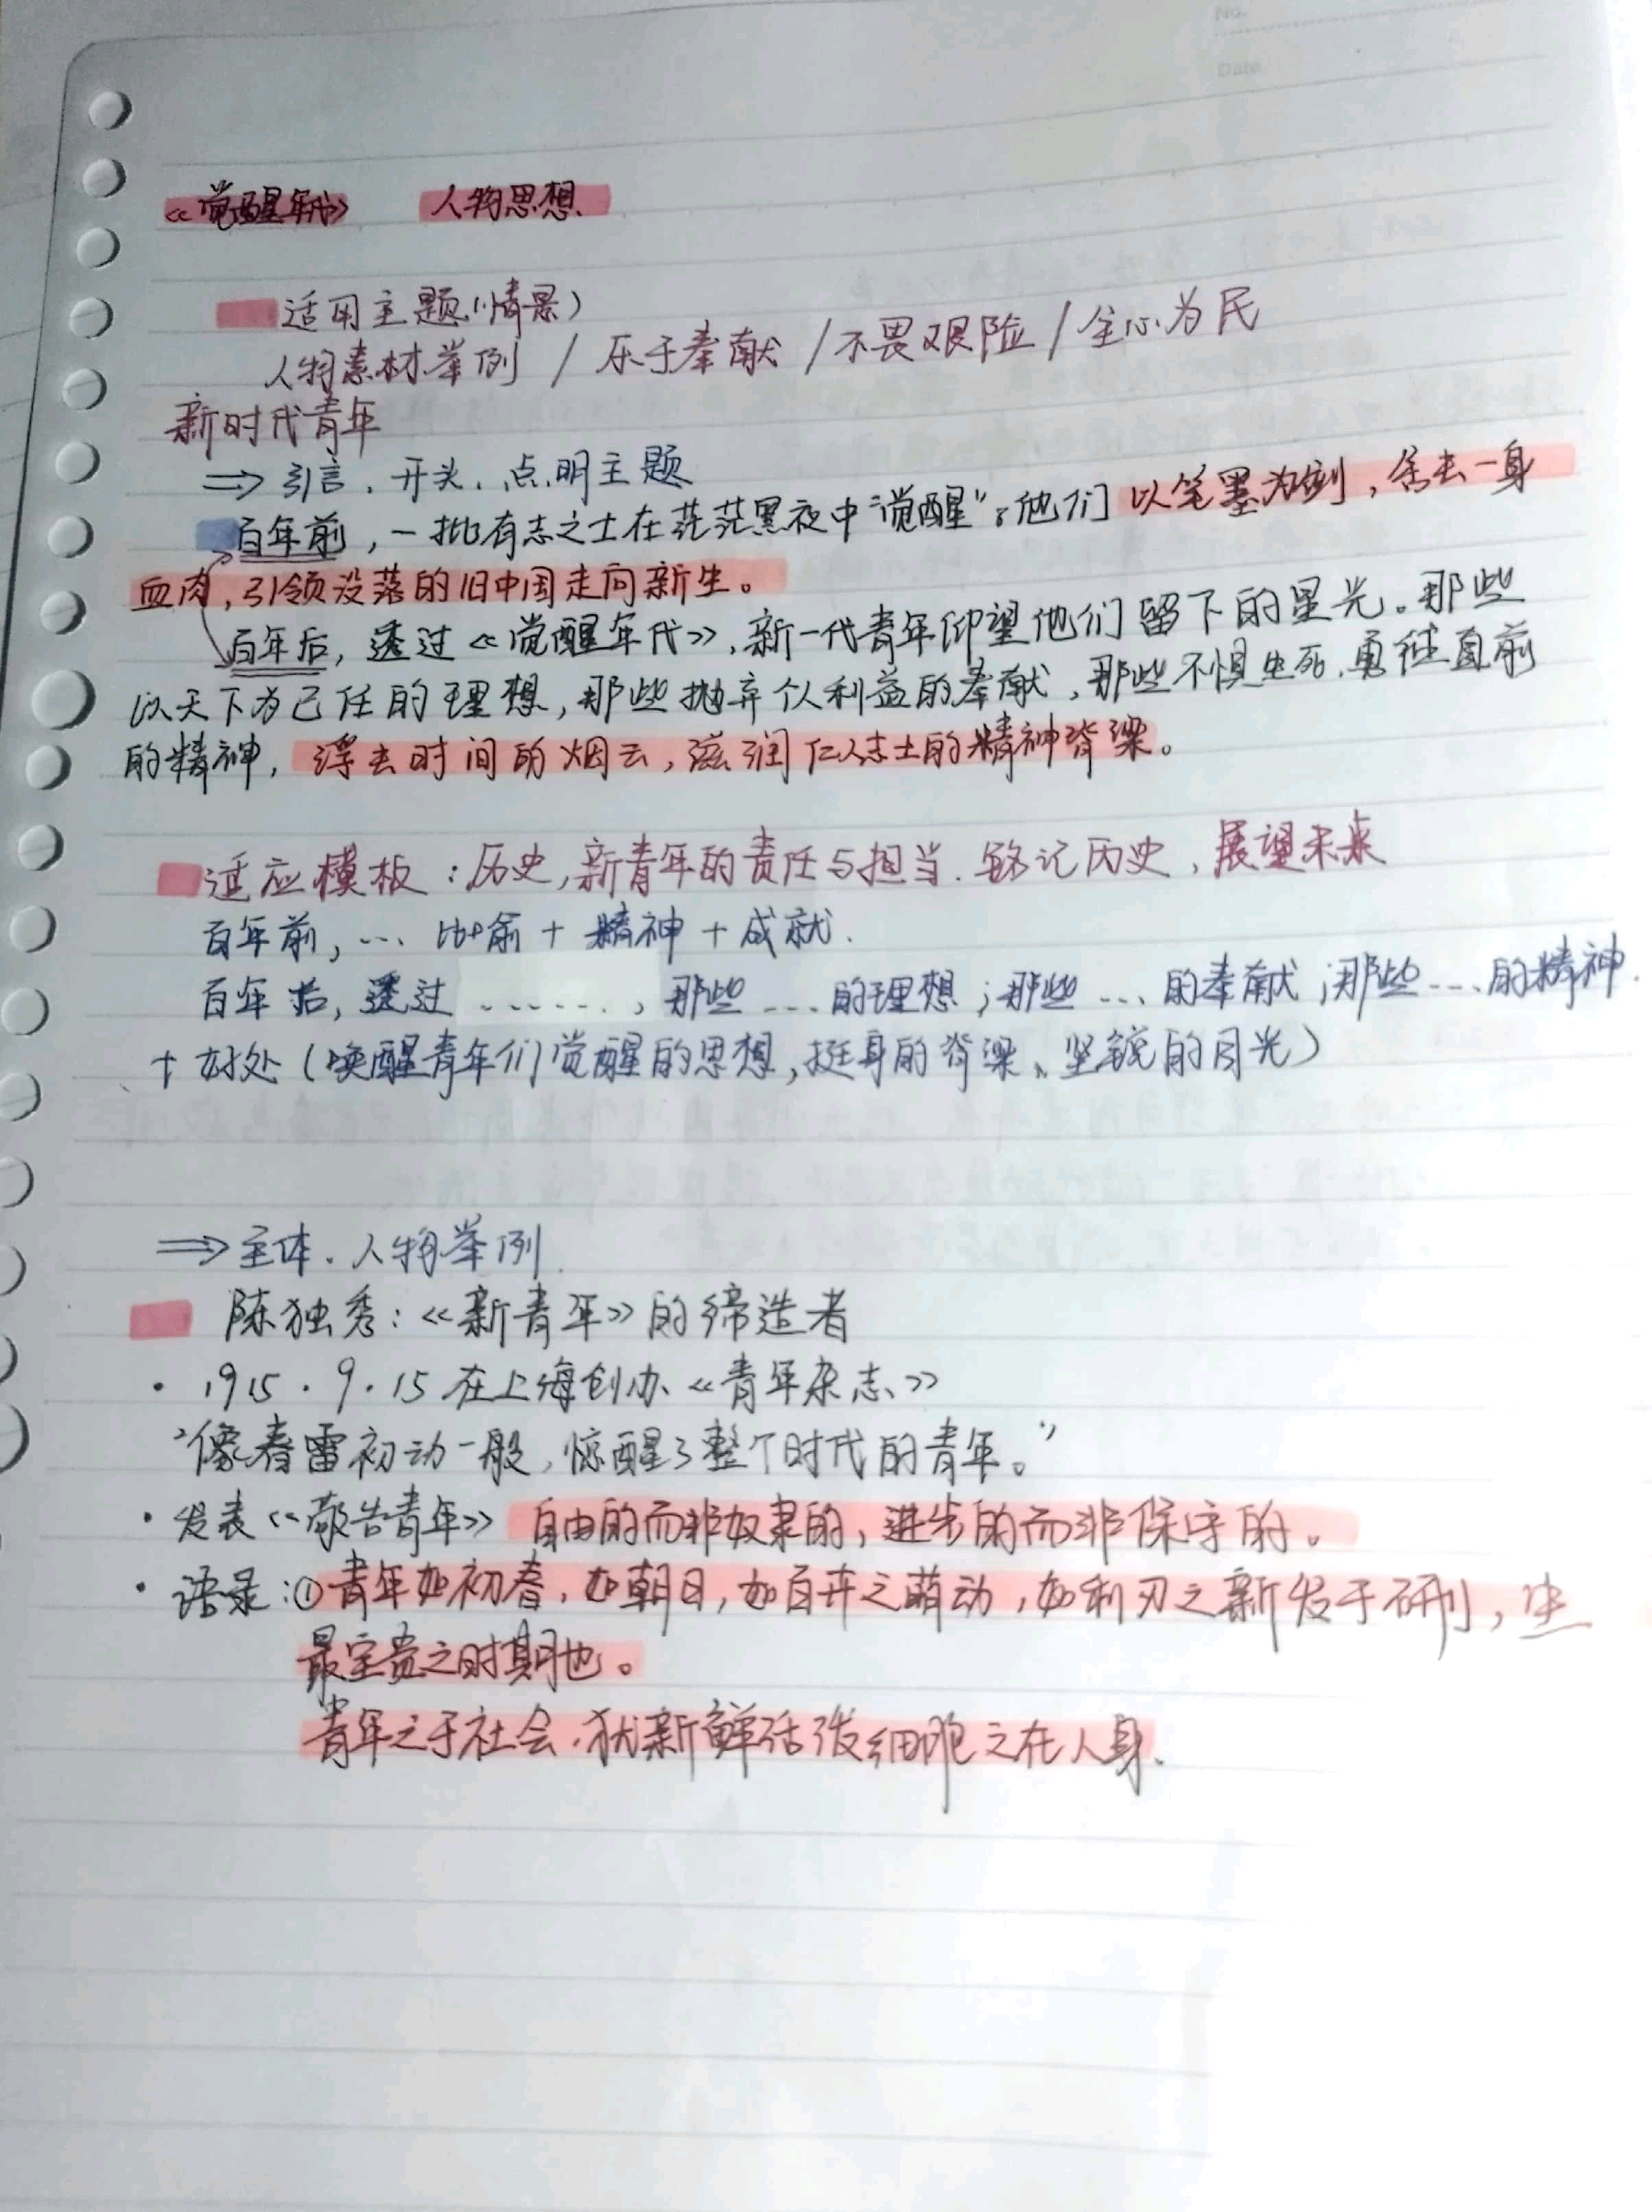 No.
Date
《觉醒年代》 人物思想
适用主题(情景)
人物素材举例 / 乐于奉献 / 不畏艰险 / 全心为民
新时代青年
⇒ 引言、开头、点明主题
百年前,一批有志之士在茫茫黑夜中“觉醒”。他们以笔墨为剑,舍去一身
血肉,引领没落的旧中国走向新生。
百年后,透过《觉醒年代》,新一代青年仰望他们留下的星光。那些
以天下为己任的理想,那些抛弃个人利益的奉献,那些不惧生死、勇往直前
的精神,浮去时间的烟云,滋润仁人志士的精神脊梁。
适应模板:历史,新青年的责任与担当、铭记历史,展望未来
百年前,… 比喻 + 精神 + 成就.
百年后,透过 ……. ,那些 … 的理想;那些 … 的奉献;那些 … 的精神.
+ 好处(唤醒青年们觉醒的思想,挺身的脊梁、坚锐的目光)
⇒ 主体、人物举例.
陈独秀:《新青年》的缔造者
· 1915.9.15 在上海创办《青年杂志》
“像春雷初动一般,惊醒了整个时代的青年。”
· 发表《敬告青年》 自由的而非奴隶的,进步的而非保守的。
· 语录:①青年如初春,如朝日,如百卉之萌动,如利刃之新发于硎,
最宝贵之时期也。
青年之于社会,犹新鲜活泼细胞之在人身、